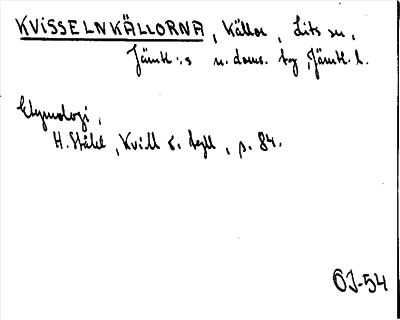 KVISSELNKÄLLORNA, källor, Lits sn,
Jämtl:s n. doms. tg, Jämtl. l.
Etymologi,
H. Ståhl, Kvill o. tyll, s. 84.
ÖJ-54